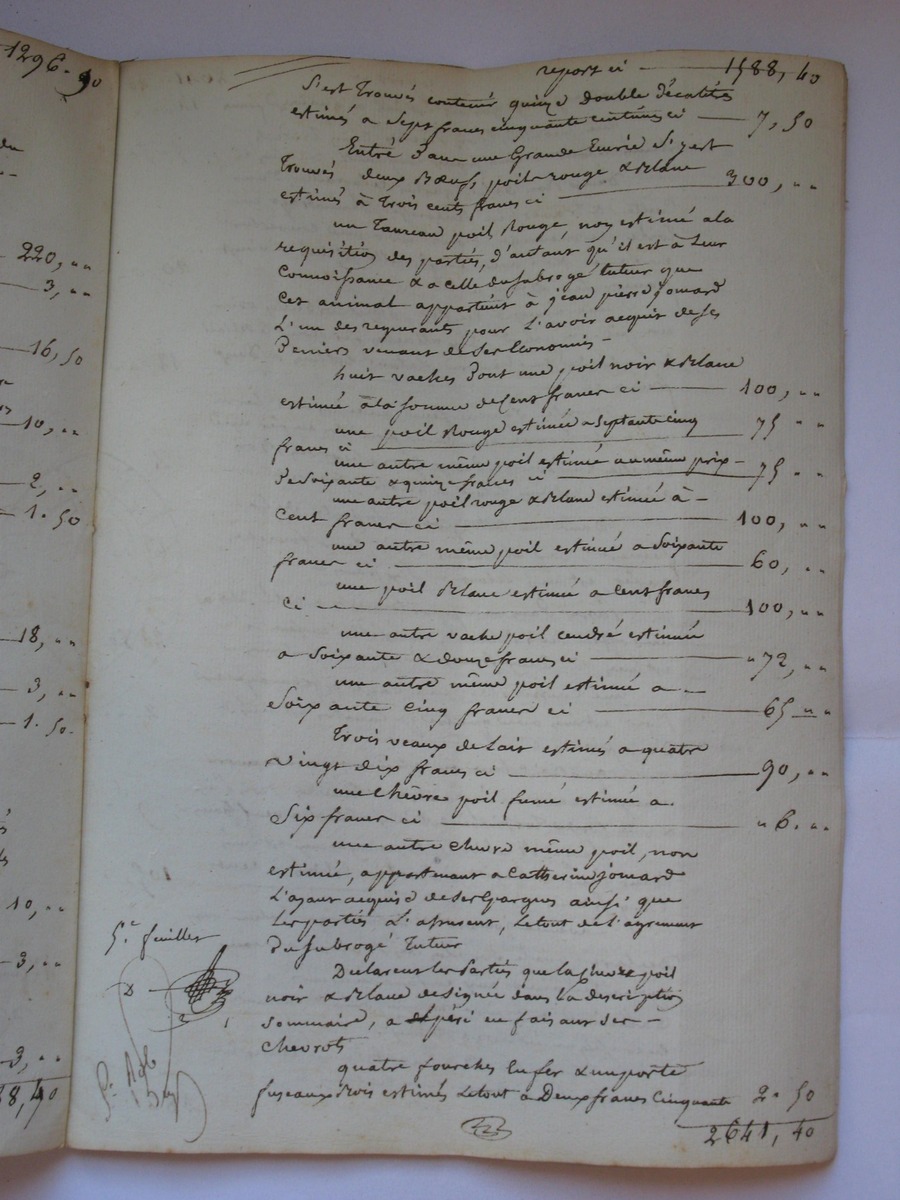 1296. 90
220, "
3, "
16, 50
10, "
2, "
1. 50
18, "
3, "
1. 50.
10, "
3, "
3, "
88, 40
report ci 1588, 40
s'est trouvés contenir quinze double décalitres
estimés a sept francs cinquante centimes ci 7, 50
Entré dans une Grande Eurie s'y est
trouvés deux Bœufs, poil rouge & Blanc
estimés à trois cents francs ci 300, "
un Taureau poil Rouge, non estimé a la
requisition des parties, d'autant qu'il est à leur
connoissance & a celle du subrogé tuteur que
cet animal appartient à jean pierre jomard
L'un des requerants pour L'avoir acquis de ses
Deniers venant de ses Economis
huit vaches Dont une poil noir & Blanc
estimée à la somme de Cent francs ci 100, "
une poil Rouge estimée a septante cinq
francs ci 75 "
une autre même poil estimée au même prix
De soixante & quinze francs ci 75 "
une autre poil rouge & Blanc estimée à
Cent francs ci 100, "
une autre même poil estimée a soixante
francs ci 60, "
une poil Blanc estimée a Cent francs
ci 100, "
une autre vache poil cendré estimée
a soixante & douze francs ci " 72, "
une autre même poil estimée a
soixante cinq francs ci 65 "
Trois veaux de Lait estimés a quatre
vingt dix francs ci 90, "
une Chèvre poil fumé estimée a
six francs ci " 6. "
une autre chevre même poil, non
estimée, appartenant a Catherine jomard
L'ayant acquise de ses Epargnes ainsi que
Les parties L'assurent, Le tout de L'agrement
Du subrogé Tuteur
Declarent Les Parties que la chevre poil
noir & Blanc designée dans la description
sommaire, a péri en faisant ses
chevrots
quatre fourches En fer & un porte
fuseaux Bois estimés Le tout a Deux francs Cinquante 2. 50
2641, 40
5.e feuillet